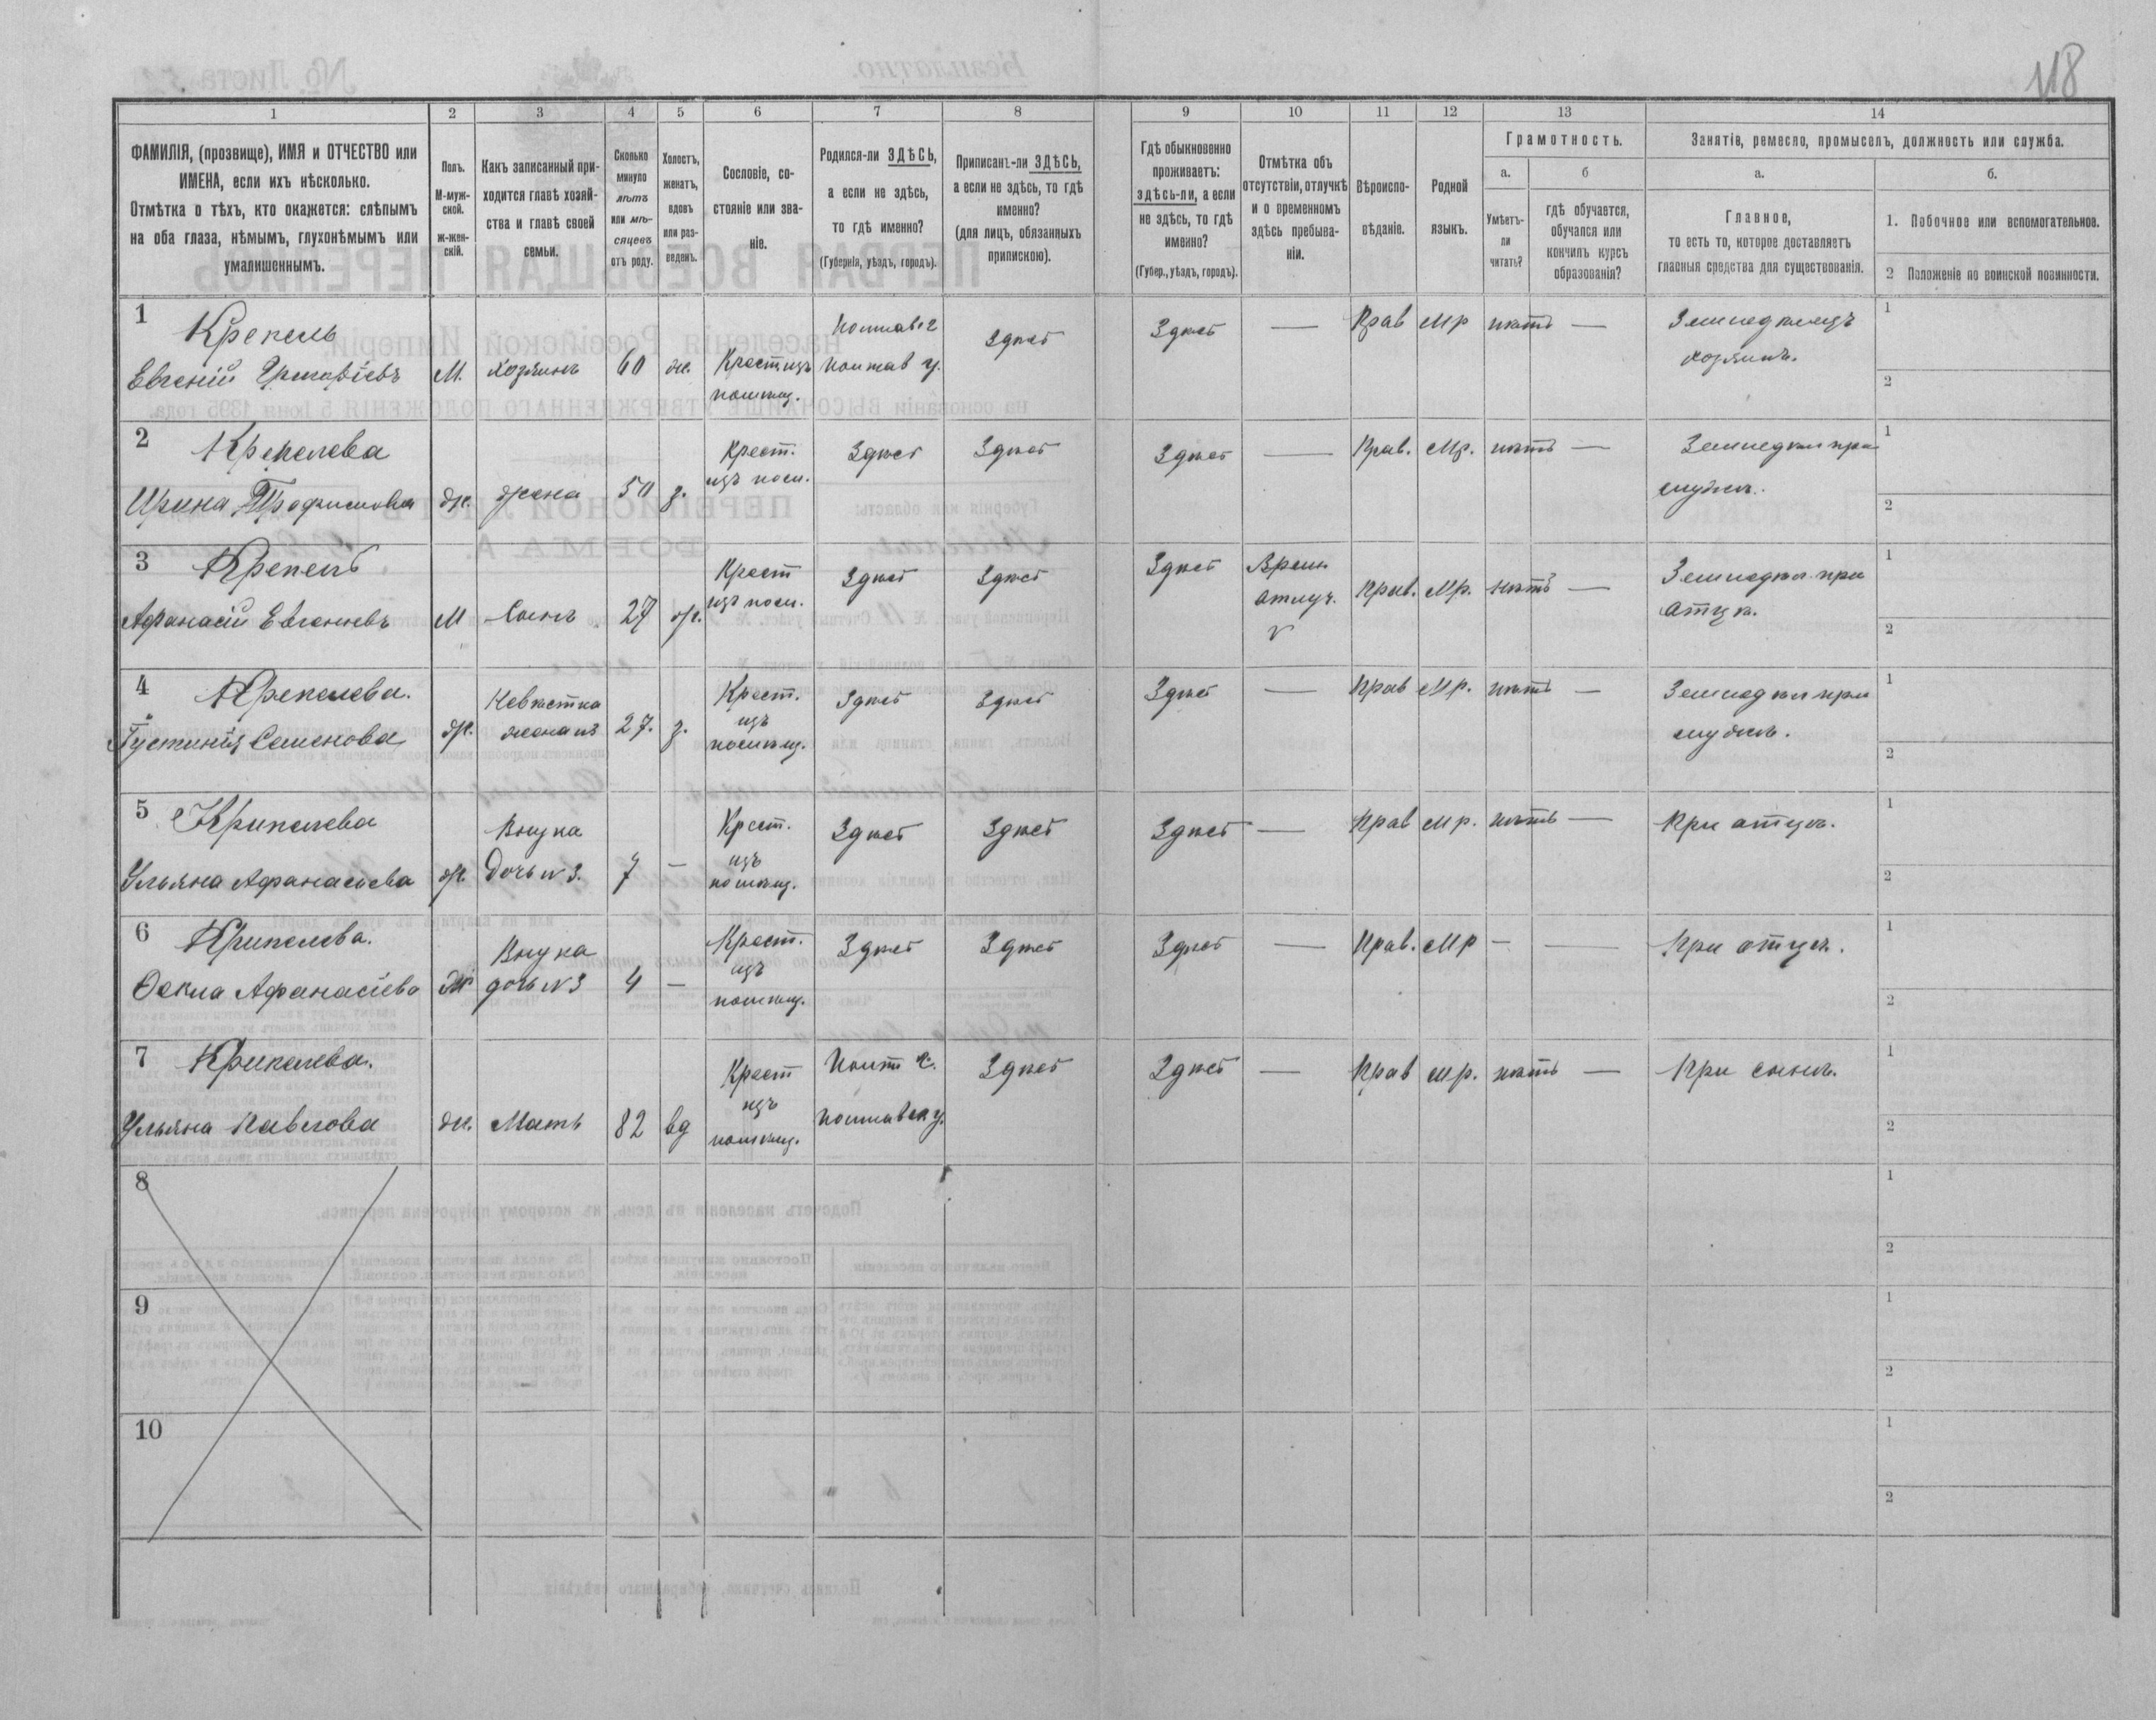 118
1 2 3 4 5 6 7 8 9 10 11 12 13 14
ФАМИЛІЯ, (прозвище), ИМЯ и ОТЧЕСТВО или
ИМЕНА, если ихъ нѣсколько.
Отмѣтка о тѣхъ, кто окажется: слѣпымъ
на оба глаза, нѣмымъ, глухонѣмымъ или
умалишеннымъ.
Полъ.
М-муж-
ской.
ж-жен-
скій.
Какъ записанный при-
ходится главѣ хозяй-
ства и главѣ своей
семьи.
Сколько
минуло
лѣтъ
или мѣ-
сяцевъ
отъ роду.
Холостъ,
женатъ,
вдовъ
или раз-
веденъ.
Сословіе, со-
стояніе или зва-
ніе.
Родился-ли ЗДѢСЬ,
а если не здѣсь,
то гдѣ именно?
(Губернія, уѣздъ, городъ).
Приписанъ-ли ЗДѢСЬ,
а если не здѣсь, то гдѣ
именно?
(для лицъ, обязанныхъ
припискою).
Гдѣ обыкновенно
проживаетъ:
здѣсь-ли, а если
не здѣсь, то гдѣ
именно?
(Губер., уѣздъ, городъ).
Отмѣтка объ
отсутствіи, отлучкѣ
и о временномъ
здѣсь пребыва-
ніи.
Вѣроиспо-
вѣданіе.
Родной
языкъ.
Грамотность.
а.
Умѣетъ-
ли
читать?
б
гдѣ обучается,
обучался или
кончилъ курсъ
образованія?
Занятіе, ремесло, промыселъ, должность или служба.
а.
Главное,
то есть то, которое доставляетъ
главныя средства для существованія.
б.
1. Побочное или вспомогательное.
2 Положеніе по воинской повинности.
1
Крепель
Евгеній
М. хозяинъ 60 ж.
Крестиазъ
помѣщ.
Полтав г
Полтав у.
Здѣсь
Здѣсь — Прав мр нѣтъ —
Земледѣлецъ
хозяинъ.
1
2
2
Крепелева
Ирина Трофимова
ж. жена 50 з.
Крест.
изъ пом.
Здѣсь Здѣсь
Здѣсь — Прав. мр. нѣтъ —
Земледѣл при
мужѣ.
1
2
3
Крепель
Афанасій Евгеніевъ
М Сынъ 27 ж.
Крест
изъ пом.
Здѣсь Здѣсь
Здѣсь
Врем
отлуч.
Прав. мр. нѣтъ —
Земледѣл. при
отцѣ.
1
2
4
Крепелева.
Іустинія Семенова
ж.
Невѣстка
жена №3
27. з.
Крест.
изъ
помѣщ.
Здѣсь Здѣсь
Здѣсь — Прав мр. нѣтъ —
Земледѣл при
мужѣ.
1
2
5
Крипелева
Ульяна Афанасьева
ж.
Внучка
дочь №3.
7 —
Крест.
изъ
помѣщ.
Здѣсь Здѣсь
Здѣсь — Прав мр. нѣтъ —
При отцѣ.
1
2
6
Крипелева.
Афанасіева
ж
Внучка
дочь №3
4 —
Крест.
изъ
помѣщ.
Здѣсь Здѣсь
Здѣсь — Прав. мр — —
При отцѣ.
1
2
7
Крипелева.
Ульяна Павлова
ж. Мать 82 вд
Крест
изъ
помѣщ.
Полт г.
Полтавск у.
Здѣсь
Здѣсь — Прав мр. нѣтъ —
При сынѣ.
1
2
8
1
2
9
1
2
10
1
2